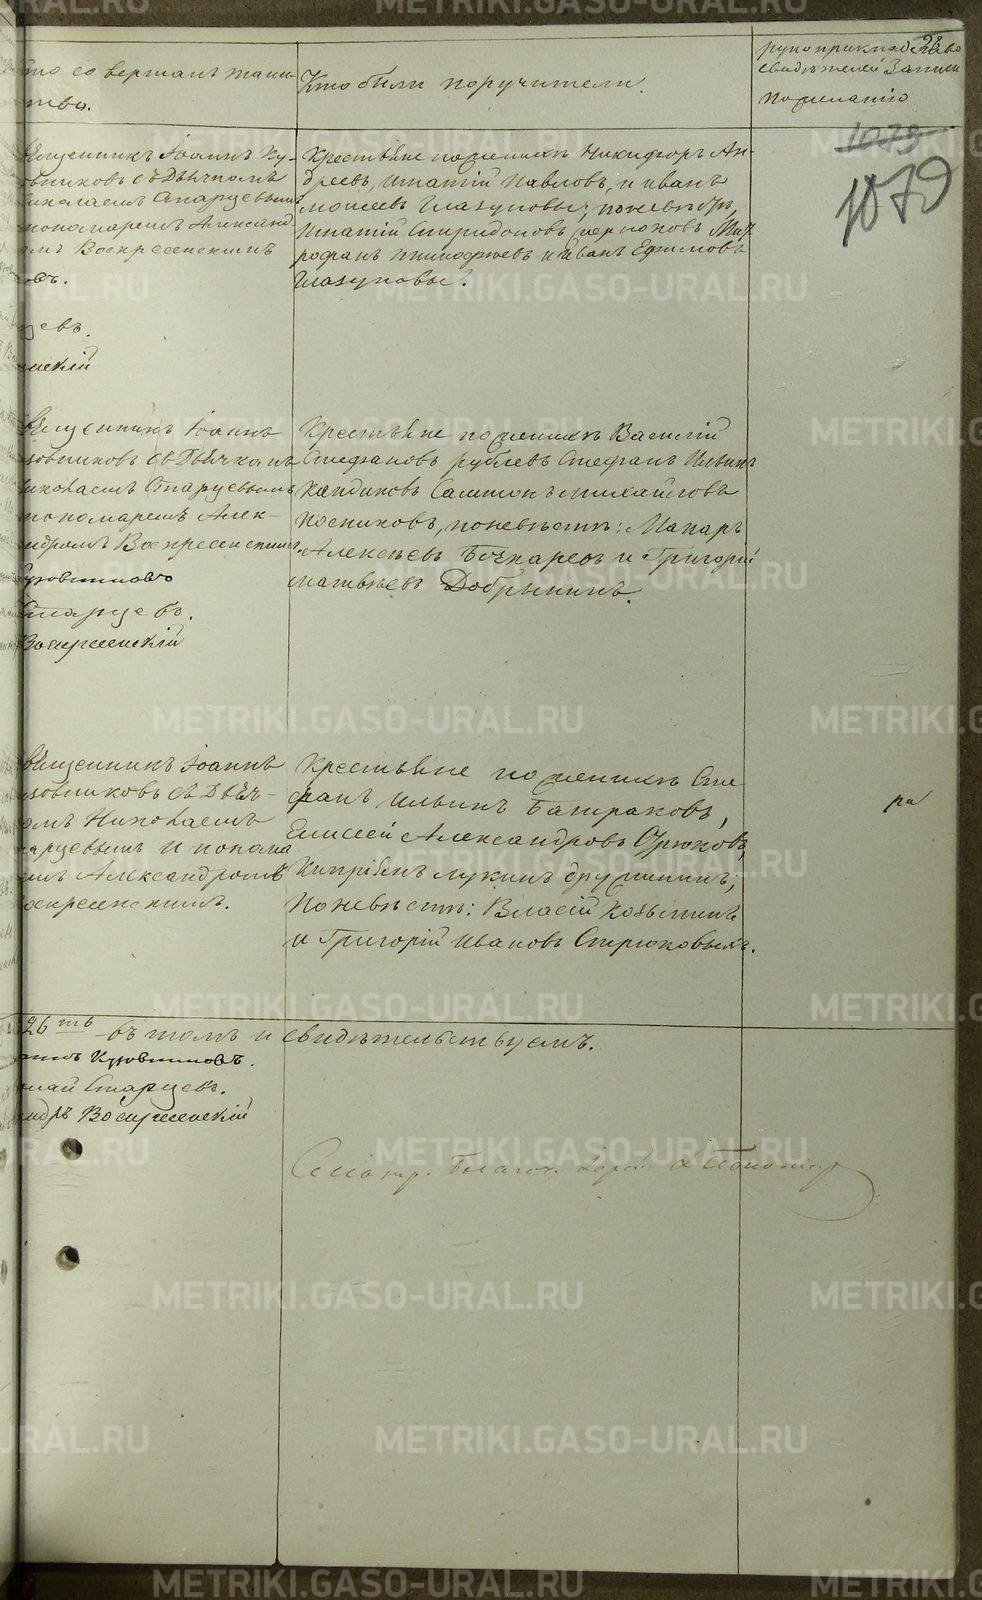 то совершалъ таин-
тво.
Кто были поручители.
рукоприкладство
свидѣтелей записи
по желанію
1079
1079
вященникъ Іоаннъ Ку-
овниковъ съ Дьячкомъ
иколаемъ Старцевымъ
пономаремъ Александ
мъ Воскресенскимъ
овъ.
цевъ.
нскій
Крестьяне по женихѣ Никифоръ Ан-
дреевъ, Игнатій Павловъ, и Иванъ
Моисеевъ Глазуновы; по невѣстѣ,
Игнатій Спиридоновъ, Мит
рофанъ Тимофѣевъ и Иванъ Ефимовъ
Глазуновы.
вященникъ Іоаннъ
зовниковъ съ Дьячкомъ
иколаемъ Старцевымъ
пономаремъ Алек-
ндромъ Воскресенским
узовниковъ
Старцевъ.
Воскресенскій
Крестьяне по женихѣ Василій
Стефановъ Рублевъ Стефанъ Ильинъ
Кандиковъ Самсонъ Михайловъ
Посниковъ, по невѣстѣ: Макаръ
Алексѣевъ Бочкаревъ и Григорій
Матвѣевъ Добрынинъ.
вященникъ Іоаннъ
зовниковъ съ Дьяч-
омъ Николаемъ
арцевымъ и понома
мъ Александромъ
оскресенскимъ.
Крестьяне по женихѣ Сте
фанъ Ильинъ Батраковъ,
Елисей Александровъ Орюковъ,
Кипріянъ Лукинъ Дружининъ;
По невѣстѣ: Власій Козьминъ
и Григорій Ивановъ Стрюковыхъ.
ра
26 ть въ томъ и свидѣтельствуемъ.
ннъ Кузовниковъ.
олай Старцевъ.
андръ Воскресенскій
Смотр. Благоч.
METRIKI.GASO-URAL.RU